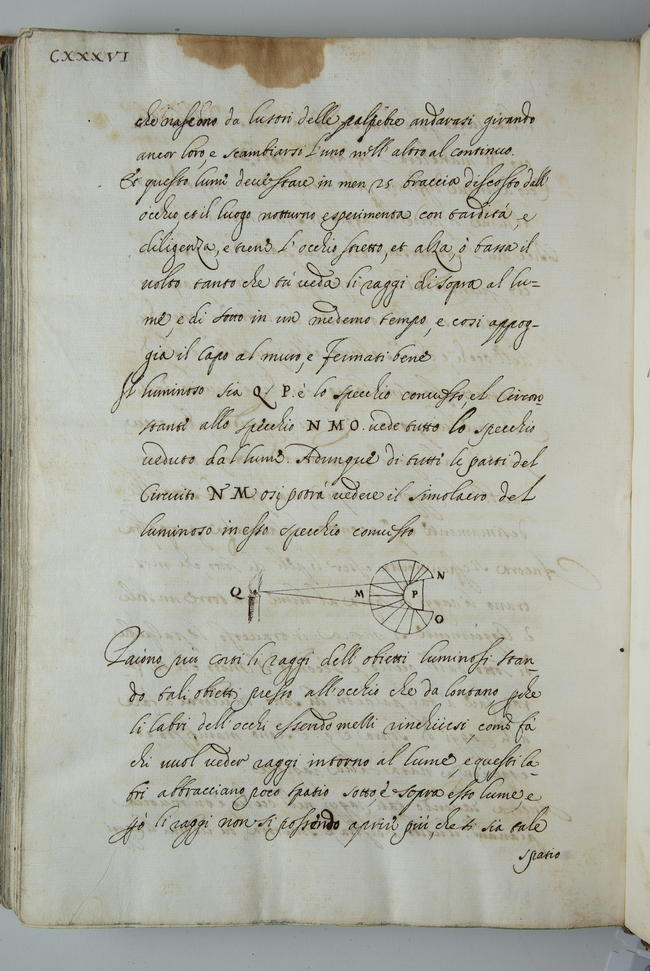 CXXXVI
che nascono da lustri delle palpebre andarasi girando
ancor loro, e scambiarsi l'uno nell'altro al continuo.
Et questo lume deve stare in men 25 braccia discosto dall'
occhio et il luogo notturno esperimenta con tardità, e
diligenza, e tiene l'occhio stretto, et alza, ò bassa il
volto tanto che tù veda li raggi di sopra al lu-
me, e di sotto in un medemo tempo, e cosi appog-
gia il capo al muro, e fermati bene
Il luminoso sia Q P. è lo specchio convesso, et Circon-
stanti allo specchio N M O. vede tutto lo specchio
veduto dal lume. Adunque di tutti le parti del
Circuito N M o si potrà vedere il simolacro del
luminoso in esso specchio convesso
Q M P N O
Paiono più corti li raggi dell'obietti luminosi stan-
do tali obietti presso all'occhio che da lontano pche
li labri dell'occhi essendo melli rinchiusi, come fà
chi vuol veder raggi intorno al lume, e questi la-
bri abbracciano poco spatio sotto, è sopra esso lume, e
pò li raggi non si possendo aprir più, che ti sia tale
spatio